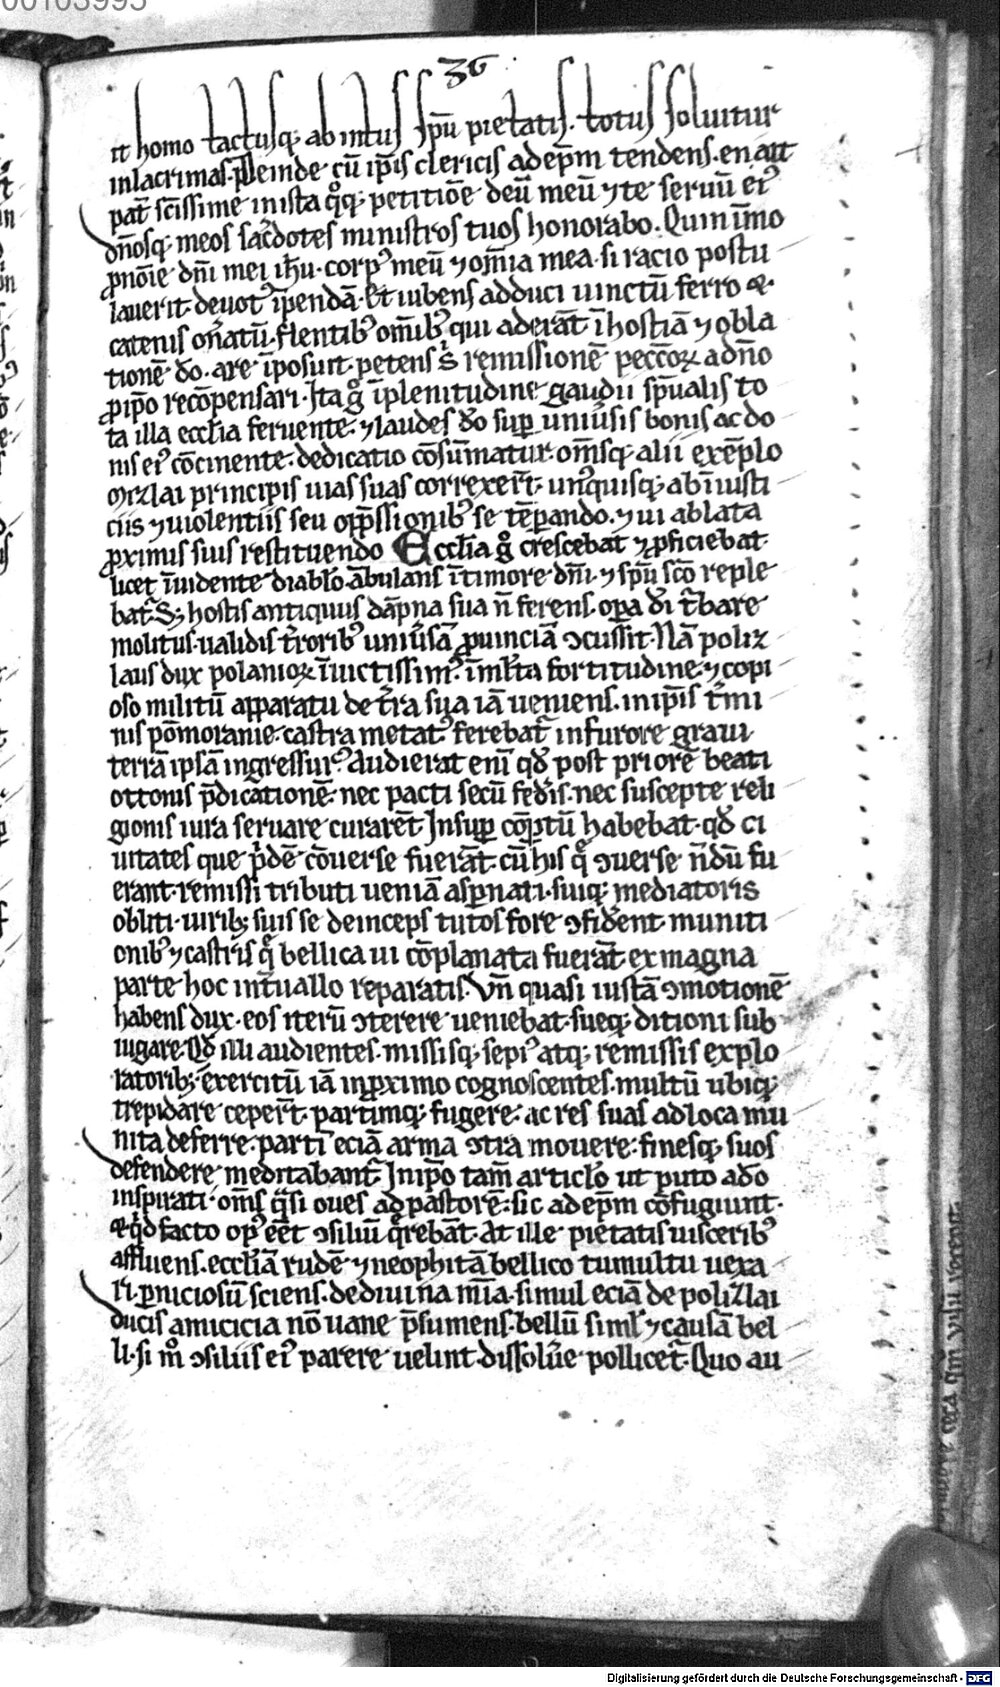 00103995
36
it homo tactusq; ab intus sp̄u pietatis. totus soluitur
in lacrimas. Deinde cū ip̄is clericis ad ep̄m tendens. en ait
pat̄ sc̄issime in ista q̊q; petitiōe deū meū ⁊ te seruū ei᷒
dn̄osq; meos sac̄dotes ministros tuos honorabo. Quin īmo
ꝓ noīe dn̄i mei ih̄u. corp᷒ meū ⁊ om̄ia mea. si racio postu
lauerit. deuot᷒ īpendā. Et iubens adduci uinctū ferro &
catenis on̄atū. flentib᷒ om̄ib᷒ qui aderāt ī hostiā ⁊ obla
tionē do. are īposuit. petens s̄ remissionē pecc̄oꝝ a dn̄o
ꝓ ip̄o recōpensari. Ita g̊ ī plenitudine gaudii sp̄ualis to
ta illa eccl̄ia feruente. ⁊ laudes deo suꝑ uniūsis bonis ac do
nis ei᷒ cōcinente. dedicatio cōsūmatur. om̄sq; alii exēplo
Mizlai principis uias suas correxer̄t. unq̊uisq; ab īiusti
ciis ⁊ uiolentiis seu opp̄ssionib᷒ se tēꝑando. ⁊ ui ablata
ꝓximis suis restituendo Eccl̄ia g̊ crescebat ⁊ ꝓficiebat
licet īuidente diabl̄o ābulans ī timore dn̄i. ⁊ sp̄u sc̄o reple
bat᷒. S; hostis antiquus dāpna sua n̄ ferens. oꝑa di t᷒bare
molitus. ualidis t̄rorib᷒ uniūsā ꝓuinciā ɔcussit. Nā poliz
laus dux polanioꝝ īuictissim᷒. ī ml̄ta fortitudine. ⁊ copi
oso militū apparatu de t̄ra sua iā ueniens. in ip̄is t̄mi
nis pōmoranie. castra metat᷒ ferebat᷒ in furore graui
terrā ipsā ingressur᷒. Audierat enī qd̄ post priorē beati
ottonis p̄dicationē. nec pacti secū fed̄is. nec suscepte reli
gionis iura seruare curarēt Insuꝑ cōp̄tū habebat. qd̄ ci
uitates que p̄dē cōuerse fuerāt. cū his q̄ ɔuerse n̄dū fu
erant. remissi tributi ueniā asꝑnati. suiq; mediatoris
obliti. uirib; suis se deinceps tutos fore ɔfid̄ent muniti
onib᷒ ⁊ castris q̄ bellica ui cōplanata fuerāt ex magna
parte hoc int̄uallo reparatis. Vn̄ quasi iustā ɔmotionē
habens dux. eos iterū ɔterere ueniebat. sueq; ditioni sub
iugare. Qd̄ illi audientes. missisq; sepi᷒ atq; remissis explo
ratorib;. exercitū iā in ꝓximo cognoscentes. multū ubiq;
trepidare ceper̄t. partimq; fugere. ac res suas ad loca mu
nita deferre. partī eciā arma ɔtra mouere. finesq; suos
defendere meditabant᷒. In ip̄o tam̄ articl̄o ut puto a do
inspirati. om̄s q̄si oues ad pastorē. sic ad ep̄m cōfugiunt.
& qd̄ facto op᷒ eēt ɔsiliū q̄rebāt. At ille pietatis uiscerib᷒
affluens. eccl̄iā rudē ⁊ neophitā bellico tumultu uexa
ri. ꝑniciosū sciens. de diuina mīa. simul eciā de polizlai
ducis amicicia nō uane p̄sumens. bellū siml̄ ⁊ causā bel
li. si m̊ ɔsiliis ei᷒ parere uelint. dissolūe pollicet᷒. Quo au
Digitalisierung gefördert durch die Deutsche Forschungsgemeinschaft - DFG